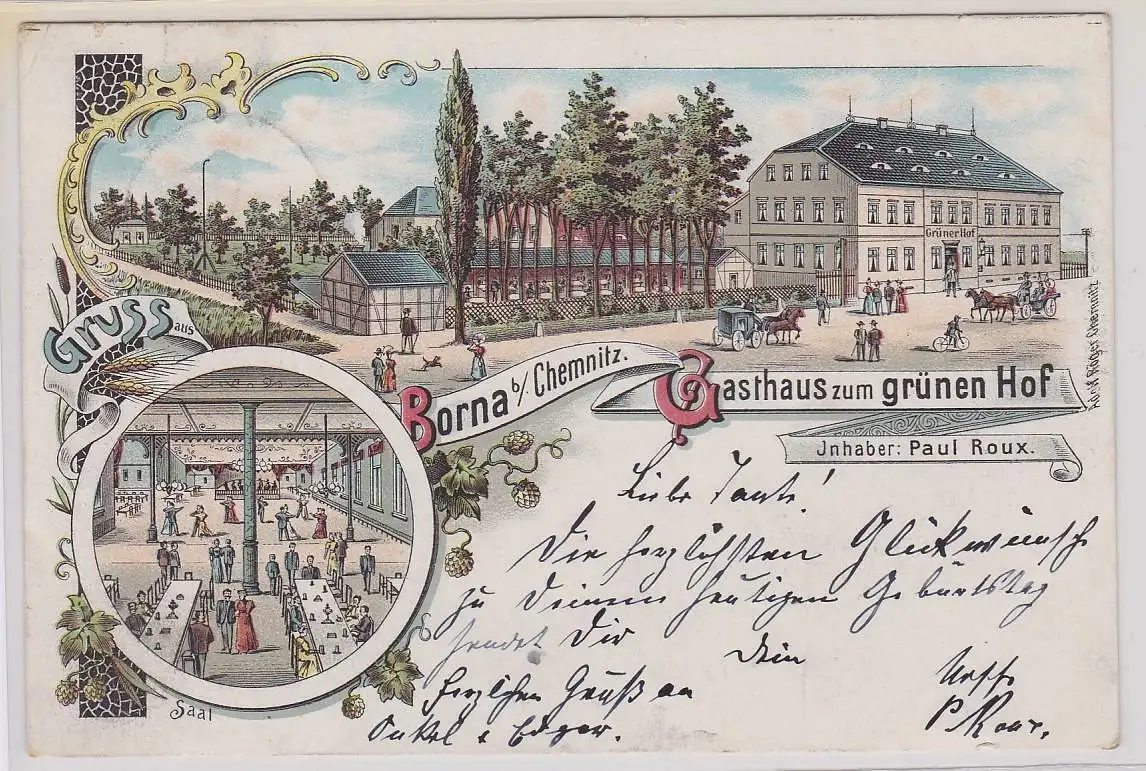 Grüner Hof
Gruss aus
Borna b/Chemnitz.
Gasthaus zum grünen Hof
Jnhaber: Paul Roux.
Saal
Liebe Tante!
Die herzlichsten Glückwünsche
zu Deinem heutigen Geburtstag
sendet Dir Dein
Neffe
P. Roux.
Herzlichen Gruß an
Onkel & Edgar.